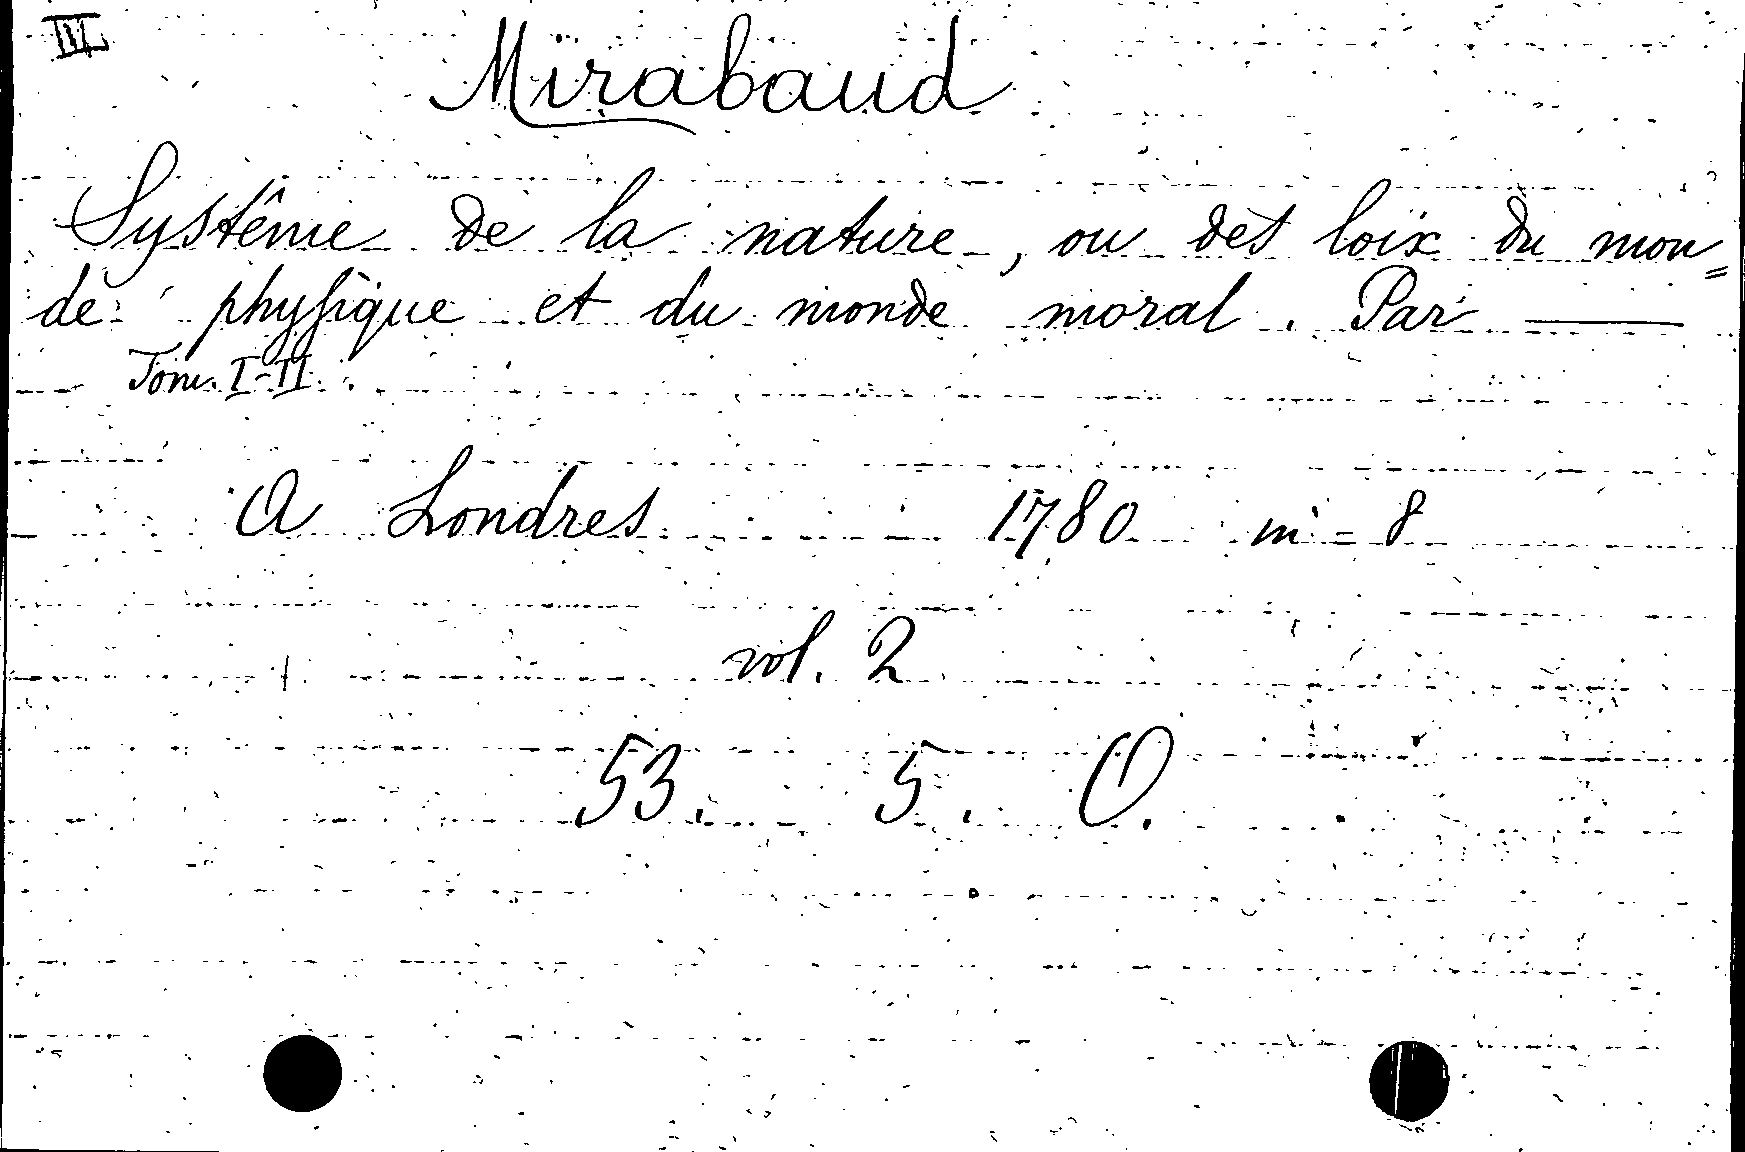 III
Mirabaud
Systême de la nature, ou des loix du mon=
de phyſique et du monde moral. Par —
Tom. I-II.
A Londres 1780 in-8
vol. 2
53. 5. O.